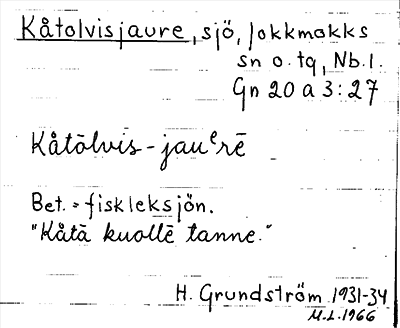 Kåtolvisjaure, sjö, Jokkmokks
sn o. tg, Nb. l.
Gn 20 a 3:27
Kåtōlvis-jauᵉrē
Bet. = fiskleksjön.
"Kåtā kuollē tanne."
H. Grundström 1931-34
M.L. 1966